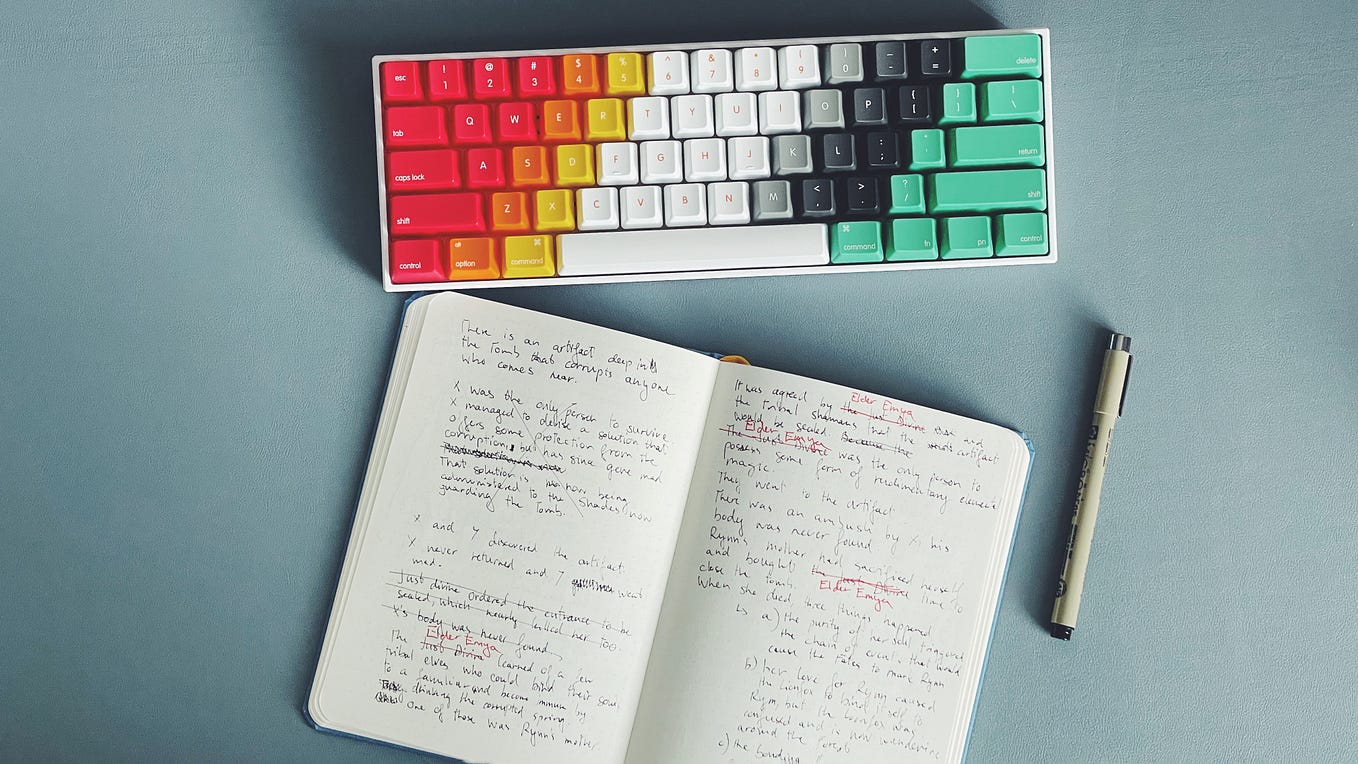 esc ! 1 @ 2 # 3 $ 4 % 5 ^ 6 & 7 * 8 ( 9 ) 0 - + = delete
tab Q W E R T Y U I O P { [ } ] | \ return
caps lock A S D F G H J K L : ; " '
shift Z X C V B N M < , > . ? / shift
control alt option ⌘ command ⌘ command fn pn control
There is an artifact deep in
the Tomb that corrupts anyone
who comes near.
X was the only person to survive.
X managed to devise a solution that
offers some protection from the
corruption, but has sine gone mad
That solution is now being
administered to the shades now
guarding the Tomb.
X and Y discovered the artifact.
X never returned and Y went
mad.
Just divine ordered the entrance to be
sealed, which nearly killed her too.
X's body was never found.
The Elder Emya Just Divine learned of a few
tribal elves who could bind their soul
to a familiar and become immun by
drinking the corrupted spring
One of those was Rynn's mother.
It was agreed by Elder Emya the Just Divine and
the tribal shamans that the artifact
would be sealed Because the
Elder Emya The Just Divine was the only person to
possess some form of rudimentary elemental
magic.
They went to the artifact
There was an ambush by X, his
body was never found
Rynn's mother had sacrificed herself
and bought the Just Divine Elder Emya time to
close the tomb.
When she died, three things happened
↳ a.) the purity of her self triggered
the chain of events that would
cause the Fates to mark Rynn
b) her love for Rynn caused
the to bind itself to
Rynn, but the was
confused and is now wandering
around the forest
c) the bonding